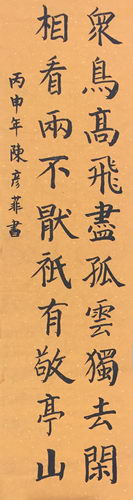 衆鳥高飛盡孤雲獨去閑
相看兩不厭祗有敬亭山
丙申年陳彦菲書